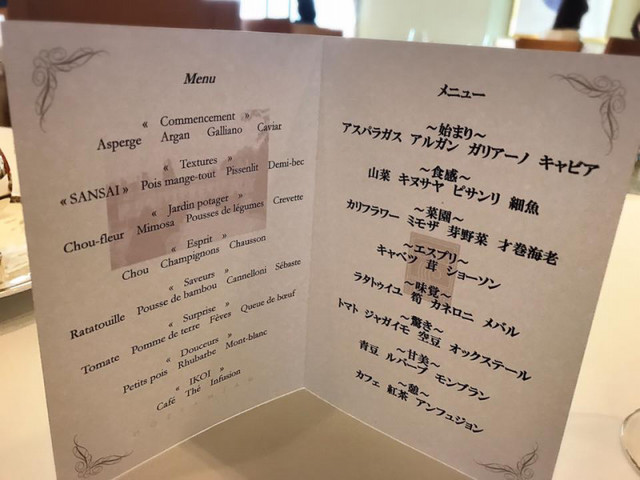 Menu
« Commencement »
Asperge Argan Galliano Caviar
« Textures »
« SANSAI » Pois mange-tout Pissenlit Demi-bec
« Jardin potager »
Chou-fleur Mimosa Pousses de légumes Crevette
« Esprit »
Chou Champignons Chausson
« Saveurs »
Ratatouille Pousse de bambou Cannelloni Sébaste
« Surprise »
Tomate Pomme de terre Fèves Queue de bœuf
« Douceurs »
Petits pois Rhubarbe Mont-blanc
« IKOI »
Café Thé Infusion
メニュー
～始まり～
アスパラガス アルガン ガリアーノ キャビア
～食感～
山菜 キヌサヤ ピサンリ 細魚
～菜園～
カリフラワー ミモザ 芽野菜 才巻海老
～エスプリ～
キャベツ 茸 ショーソン
～味覚～
ラタトゥイユ 筍 カネロニ メバル
～驚き～
トマト ジャガイモ 空豆 オックステール
～甘美～
青豆 ルバーブ モンブラン
～憩～
カフェ 紅茶 アンフュジョン